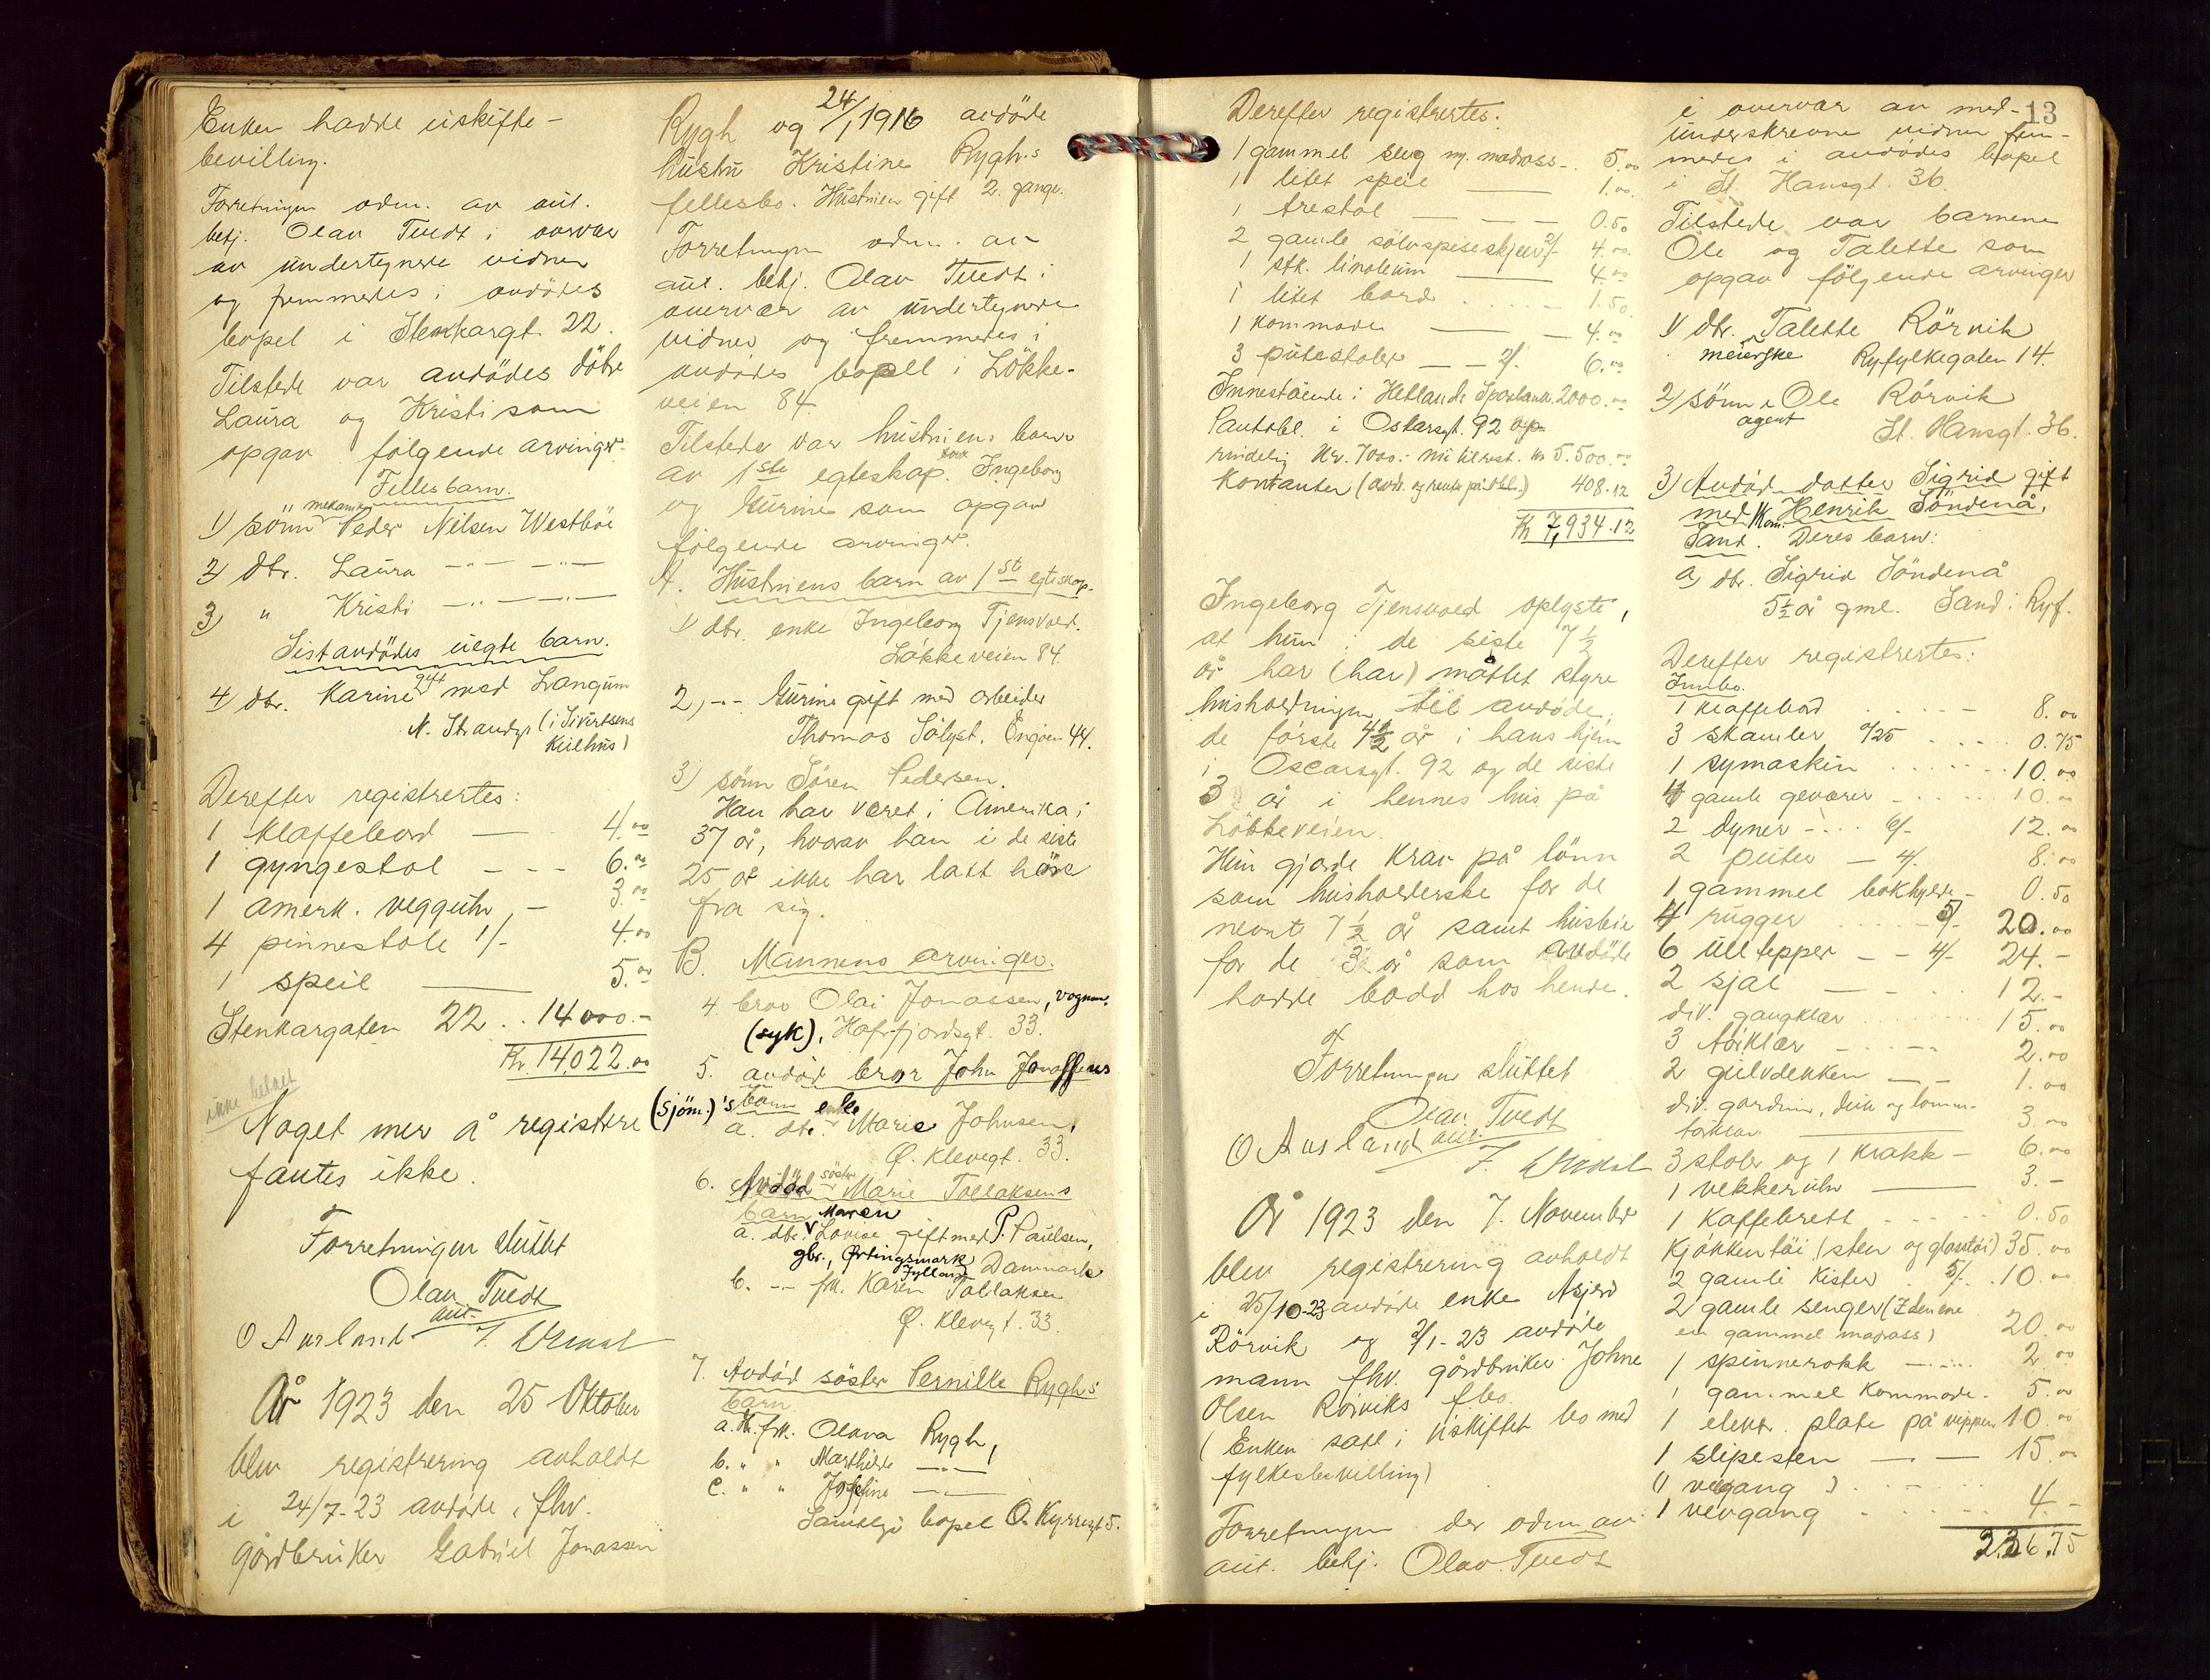 Enken hadde uskifte-
bevilling.
Forretningen adm. av aut.
betj. Olav Tvedt i overvær
av undertegnede vidner
og fremmedes i avdødes
bopel i Stenkargt. 22.
Tilstede var avdødes døtre
Laura og Kristi som
opgav følgende arvinger:
Fellesbarn.
1) sønn mekaniker Peder Nilsen Westbøe
2) dtr. Laura -"- -"-
3) " Kristi -"- -"-
Sistavdødes uegte barn.
4) dtr. Karine gift med Langum
N. Strandgt. (i Sivertsens
Kullhus)
Derefter registrertes:
1 klaffebord — 4.00
1 gyngestol - - - 6.00
1 amerk. vegguhr, - 3.00
4 pinnestole 1/- 4.00
1 speil — 5.00
Stenkargaten 22 . . 14000.-
Kr. 14,022.00
ikke betalt
Noget mer å registrere
fantes ikke.
Forretningen sluttet
Olav Tvedt
aut.
O Ausland
År 1923 den 25 Oktober
blev registrering avholdt
i 24/7-23 avdøde, fhv.
gårdbruker Gabriel Jonassen
Rygh og 24/1 1916 avdøde
hustru Kristine Rygh's
fellesbo. Hustruen gift 2. gange.
Forretningen adm. av
aut. betj. Olav Tvedt i
overvær av undertegnede
vidner og fremmedes i
avdødes bopell i Løkke-
veien 84.
Tilstede var hustruens barn
av 1ste egteskap Ingeborg
og Gurine som opgav
følgende arvinger.
A. Hustruens barn av 1ste egteskap.
1) dtr. enke Ingeborg Tjensvold.
Løkkeveien 84.
2) -"- Gurine gift med arbeider
Thomas Sølyst. Engøen 44.
3) sønn Søren Pedersen.
Han har været i Amerika i
37 år, hvorav han i de siste
25 år ikke har latt høre
fra sig.
B. Mannens arvinger.
4. bror Olai Jonassen, vognm.
(syk), Hafrsfjordsgt. 33.
5. avdød bror John Jonassens
(sjøm.)'s barn
a. dtr. enke Marie Johnsen,
Ø. Klevegt. 33.
6. Avdød søster Marie Tollaksens
barn
a. dtr. Maren Lovise gift med P. Paulsen,
gbr., Ørtingsmark Jylland Danmark
b. -- frk. Karen Tollaksen
Ø. Klevegt. 33.
7. Avdød søster Pernille Rygh's
barn
a. frk. Olava Rygh,
b. " " Marthilde -"-
c. " " Josefine -"-
Samtlige bopel O. Kyrresgt 5.
13
Derefter registrertes:
1 gammel seng m. madrass - 5.00
1 litet speil — 1.00
1 trestol — — — 0.50
2 gamle sølvspiseskjeer 2/- 4.00
1 stk. linoleum — 4.00
1 litet bord . . . . - 1.50
1 kommode — — 4.00
3 putestoler — — 2/- 6.00
Innestående i Hetlands Sparbank 2000.00
Pantobl. i Oskarsgt. 92 op-
rindelig Kr. 7000.- nu til rest. kr 5.500.00
Kontanter (avdr. og rente på obl.) 408.12
Kr 7,934.12
Ingeborg Tjensvold oplyste,
at hun i de siste 7 1/2
år har (har) måttet styre
husholdningen til avdøde,
de første 4 1/2 år i hans hjem
i Oscarsgt. 92 og de siste
3 år i hennes hus på
Løkkeveien.
Hun gjorde krav på lønn
som husholderske for de
nevnte 7 1/2 år samt husleie
for de 3 år som avdøde
hadde bodd hos hende.
Forretningen sluttet
Olav Tvedt
aut.
O Ausland
År 1923 den 7. November
blev registrering avholdt
i 25/10-23 avdøde enke Asjerd
Rørvik og 2/1-23 avdøde
mann fhv. gårdbruker Johne
Olsen Rørviks fbo.
(Enken satt i uskiftet bo med
fylkesbevilling)
Forretningen der adm av
aut. betj. Olav Tvedt
i overvær av med-
underskrevne vidner frem-
medes i avdødes bopel
i St. Hansgt. 36.
Tilstede var barnene
Ole og Talette som
opgav følgende arvinger
1) dtr. Talette Rørvik
meierske Ryfylkegaten 14.
2) sønn Ole Rørvik
agent St. Hansgt. 36.
3) Avdød datter Sigrid gift
med Henrik Søndenå,
Sand. Deres barn:
a) dtr. Sigrid Søndenå
5 1/2 år gml. Sand i Ryf.
Derefter registrertes:
Innbo.
1 klaffebord . . . . - 8.00
3 skamler a/25 . . . . 0.75
1 symaskin . . . . . . 10.00
4 gamle geværer . . . . 10.00
2 dyner - . . . 6/- 12.00
2 puter — 4/- 8.00
1 gammel bokhylde - 0.50
4 rugger . . . . 5/- 20.00
6 ulltepper - - 4/- 24.-
2 sjal — - - 12.-
div. gangklær . . . . 15.00
3 . . - - 2.00
2 gulvdekken — - 1.00
div. gardiner, duk og lomme-
tørklær — 3.00
3 stoler og 1 krakk - 6.00
1 vekkeruhr — 3.-
1 kaffebrett . . . . 0.50
Kjøkkentøi (sten og glasstøi) 35.00
2 gamle kister . 5/- . 10.00
2 gamle senger (I den ene
en gammel madrass) 20.00
1 spinnerokk — . . . . 2.00
1 gammel kommode - 5.00
1 elektr. plate på vippen 10.00
1 slipesten — — 15.00
(1 vevgang) . . - . . .
1 vevgang . . . . . 4.-
236.75